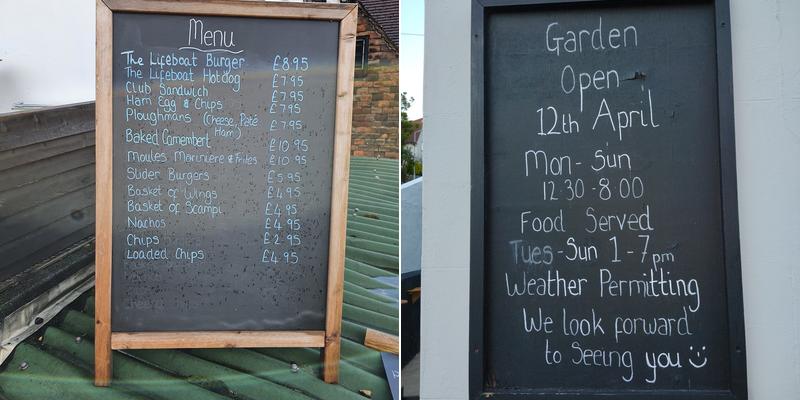 Menu
The Lifeboat Burger £8.95
The Lifeboat Hotdog £7.95
Club Sandwich £7.95
Ham Egg & Chips £7.95
Ploughmans (Cheese, Paté £7.95
Ham)
Baked Camembert £10.95
Moules Mariniere & Frites £10.95
Slider Burgers £5.95
Basket of Wings £4.95
Basket of Scampi £4.95
Nachos £4.95
Chips £2.95
Loaded Chips £4.95
Garden
Open
12th April
Mon-Sun
12:30-8:00
Food Served
Tues-Sun 1-7pm
Weather Permitting
We look forward
to seeing you